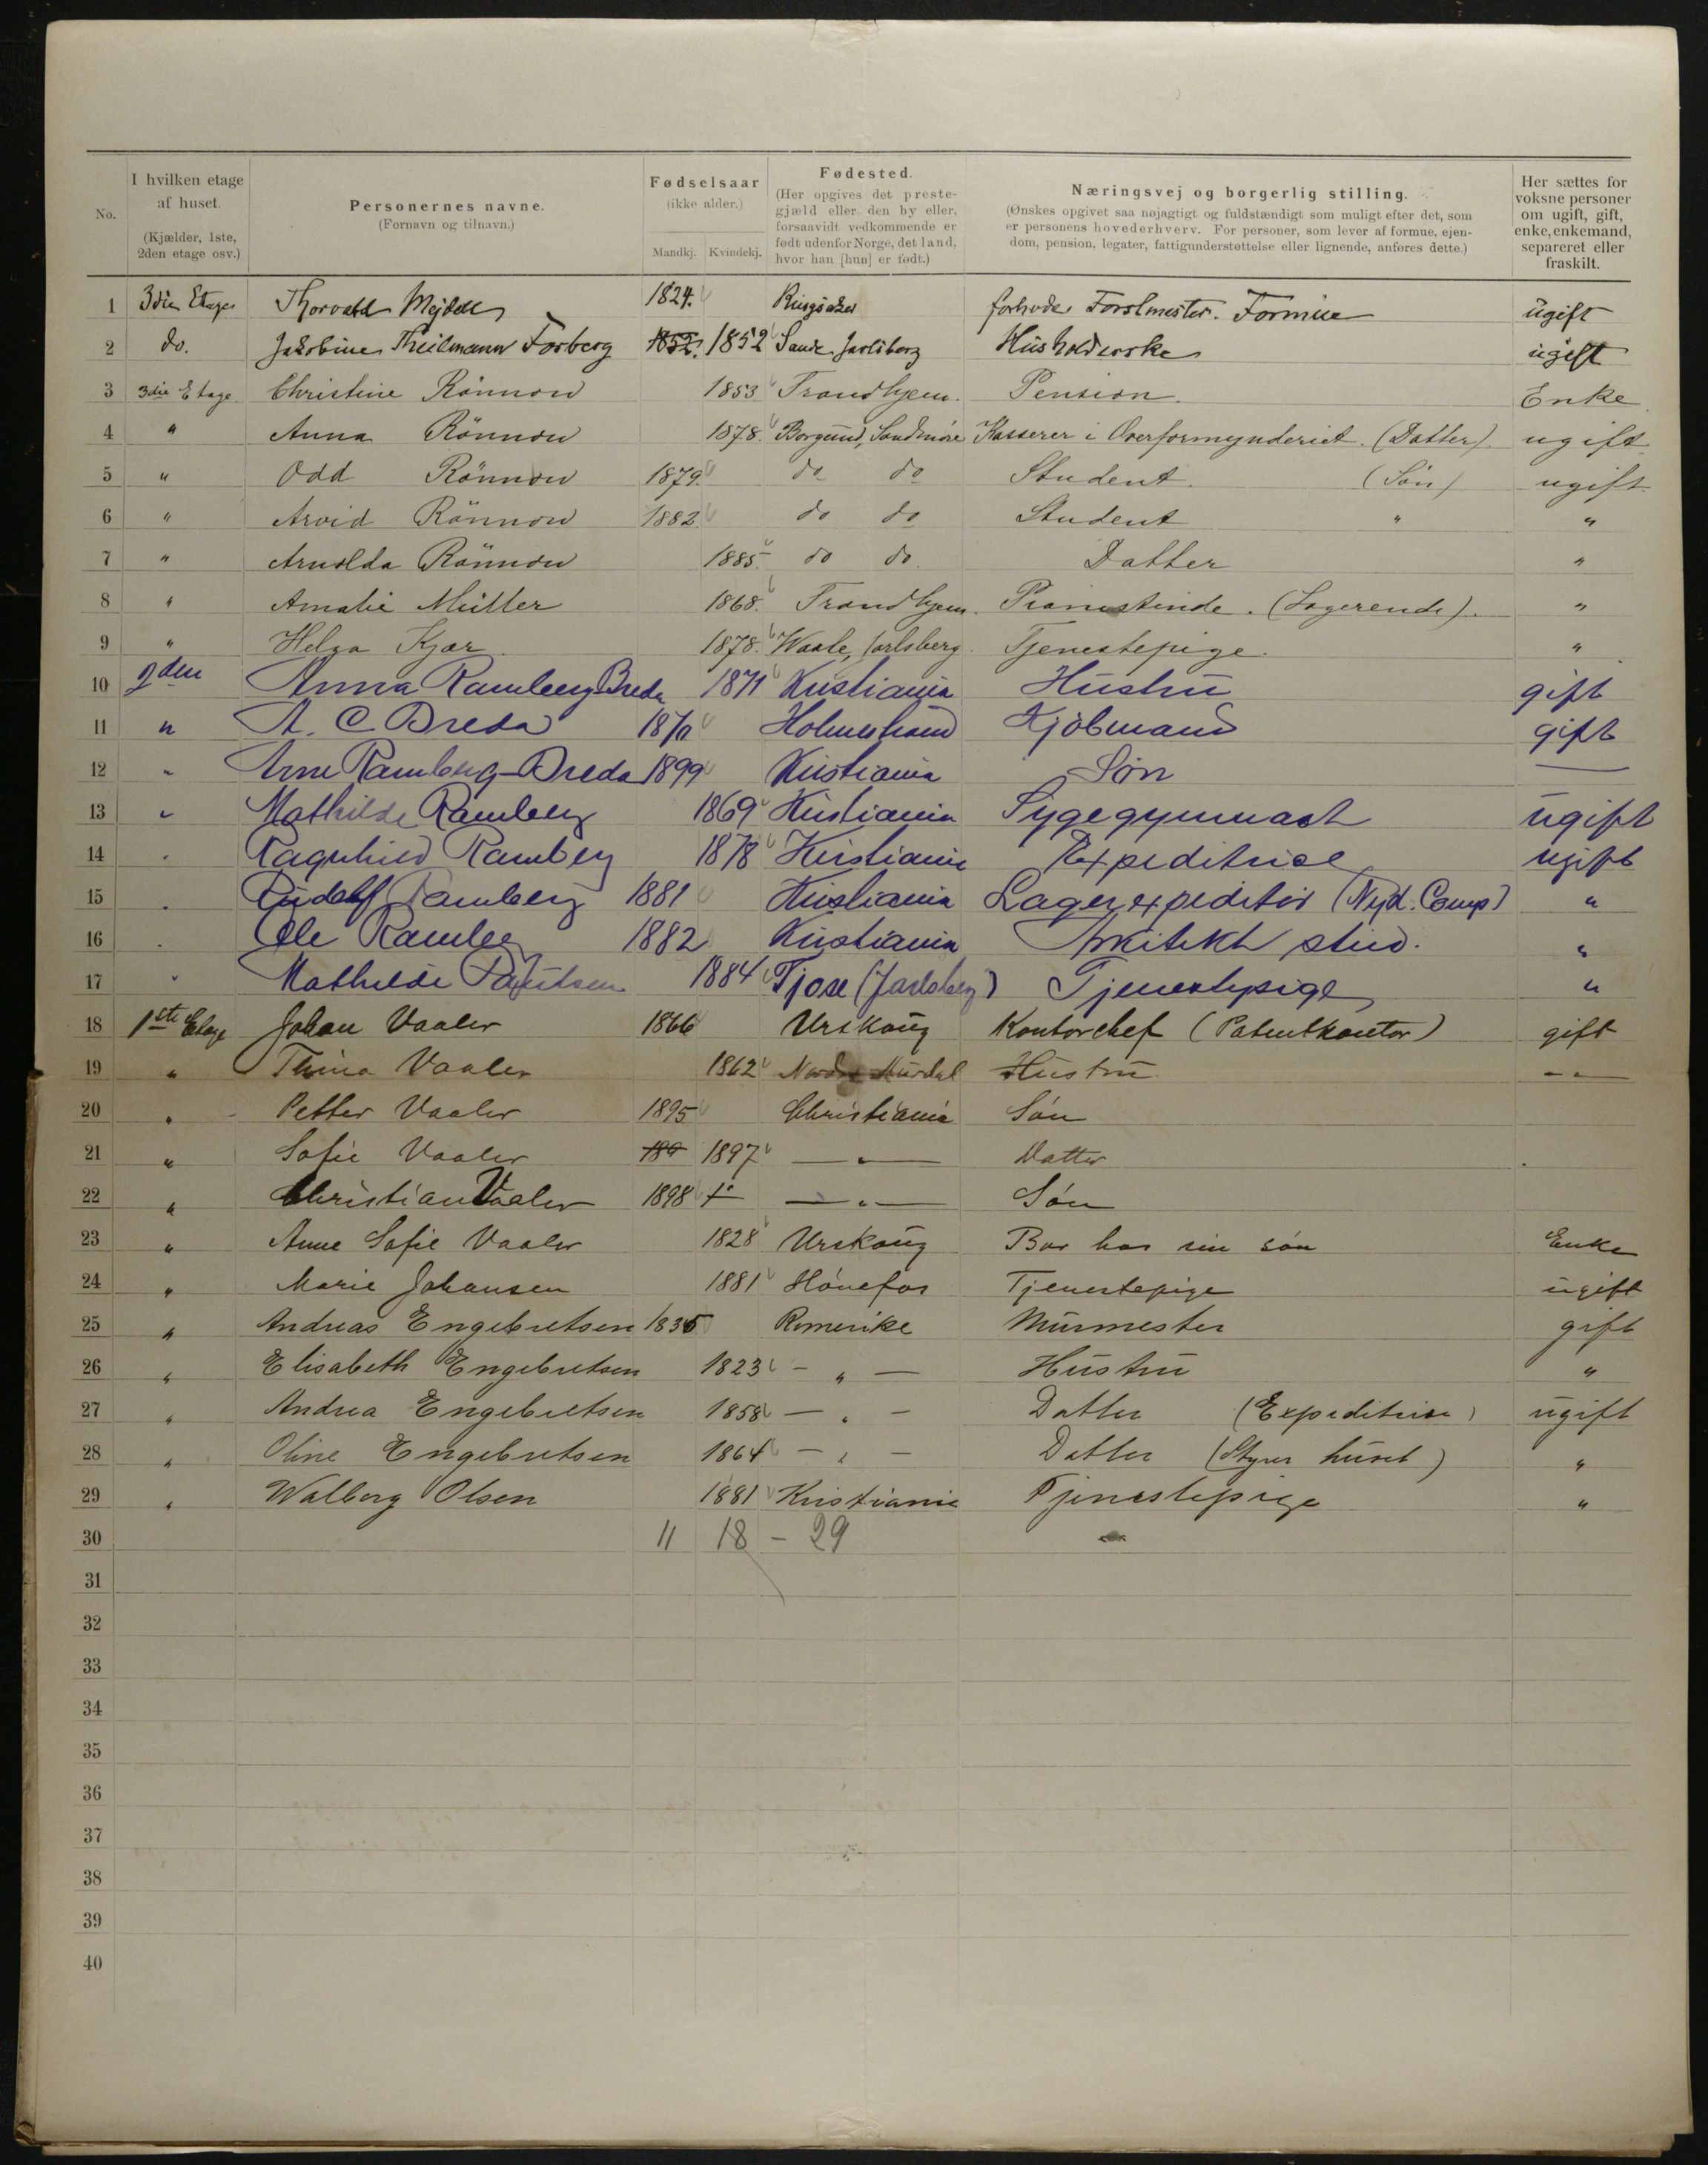 No.
I hvilken etage af huset. (Kjælder, 1ste, 2den etage osv.)
Personernes navne. (Fornavn og tilnavn.)
Fødselsaar (ikke alder.) Mandkj. Kvindekj.
Fødested. (Her opgives det prestegjæld eller den by eller, forsaavidt vedkommende er født udenfor Norge, det land, hvor han [hun] er født.)
Næringsvej og borgerlig stilling. (Ønskes opgivet saa nøjagtigt og fuldstændigt som muligt efter det, som er personens hovederhverv. For personer, som lever af formue, ejendom, pension, legater, fattigunderstøttelse eller lignende, anføres dette.)
Her sættes for voksne personer om ugift, gift, enke, enkemand, separeret eller fraskilt.
1 3die Etage Thorvald Mejdell 1824. Ringsaker forhv. Forstmester. Formue ugift
2 do. Jakobine Theilmann Forberg 1852. 1852 Sande Jarlsberg Husholderske ugift
3 3die Etage Christine Rönnow 1853 Trondhjem. Pension. Enke
4 " Anna Rönnow 1878. Borgund, Søndmøre Kasserer i Overformynderiet. (Datter). ugift
5 " Odd Rönnow 1879. do do Student. (Søn) ugift
6 " Arvid Rönnow 1882. do do Student " "
7 " Arnolda Rönnow 1885. do do. Datter "
8 " Amalie Müller 1868. Trondhjem. Pianistinde. (Logerende). "
9 " Helga Kjær. 1878. Waale, Jarlsberg. Tjenestepige. "
10 2den Anna Ramberg Breda 1871 Kristiania Hustru gift
11 " A. C. Breda 1870 Holmestrand Kjöbmand gift
12 " Arne Ramberg-Breda 1899 Kristiania Søn —
13 " Mathilde Ramberg 1869 Kristiania Sygegymnast ugift
14 " Ragnhild Ramberg 1878 Kristiania Expeditrice ugift
15 " Rudolf Ramberg 1881 Kristiania Lagerexpeditör (Nyd. Comp) "
16 " Ole Ramberg 1882 Kristiania Arkitekt stud. "
17 " Mathilde Paulsen 1884 Tjøse (Jarlsberg) Tjenestepige "
18 1ste Etage Johan Vaaler 1866 Urskoug Kontorchef (Patentkontor) gift
19 " Thina Vaaler 1862 Nordre Aurdal Hustru — " —
20 " Petter Vaaler 1895 Christiania Søn
21 " Sofie Vaaler 189 1897 — " — Datter
22 " Christian Vaaler 1898 — " — Søn
23 " Anne Sofie Vaaler 1828 Urskoug Bor hos sin søn Enke
24 " Marie Johansen 1881 Hønefos Tjenestepige ugift
25 " Andreas Engebretsen 1835 Romerike Murmester gift
26 " Elisabeth Engebretsen 1823 — " — Hustru "
27 " Andrea Engebretsen 1858 — " — Datter (Expeditrise) ugift
28 " Oline Engebretsen 1864 — " — Datter (Styrer huset) "
29 " Walborg Olsen 1881 Kristiania Tjenestepige "
30 11 18 – 29
31
32
33
34
35
36
37
38
39
40